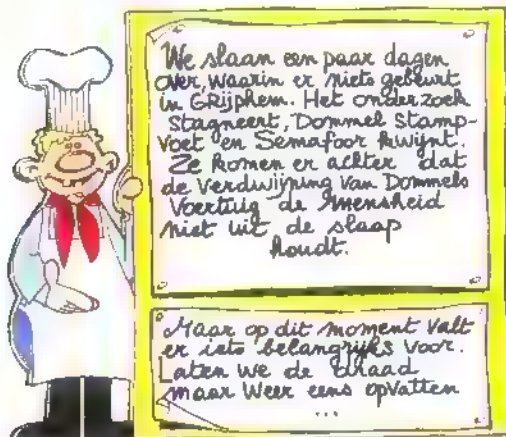 We slaan een paar dagen
over, waarin er niets gebeurt
in Grijphem. Het onderzoek
stagneert, Dommel Stamp-
voet en Semafoor kwijnt.
Ze komen er achter dat
de verdwijning van Dommels
voertuig de mensheid
niet uit de slaap
houdt.
Maar op dit moment valt
er iets belangrijks voor.
Laten we de draad
maar weer eens opvatten
...